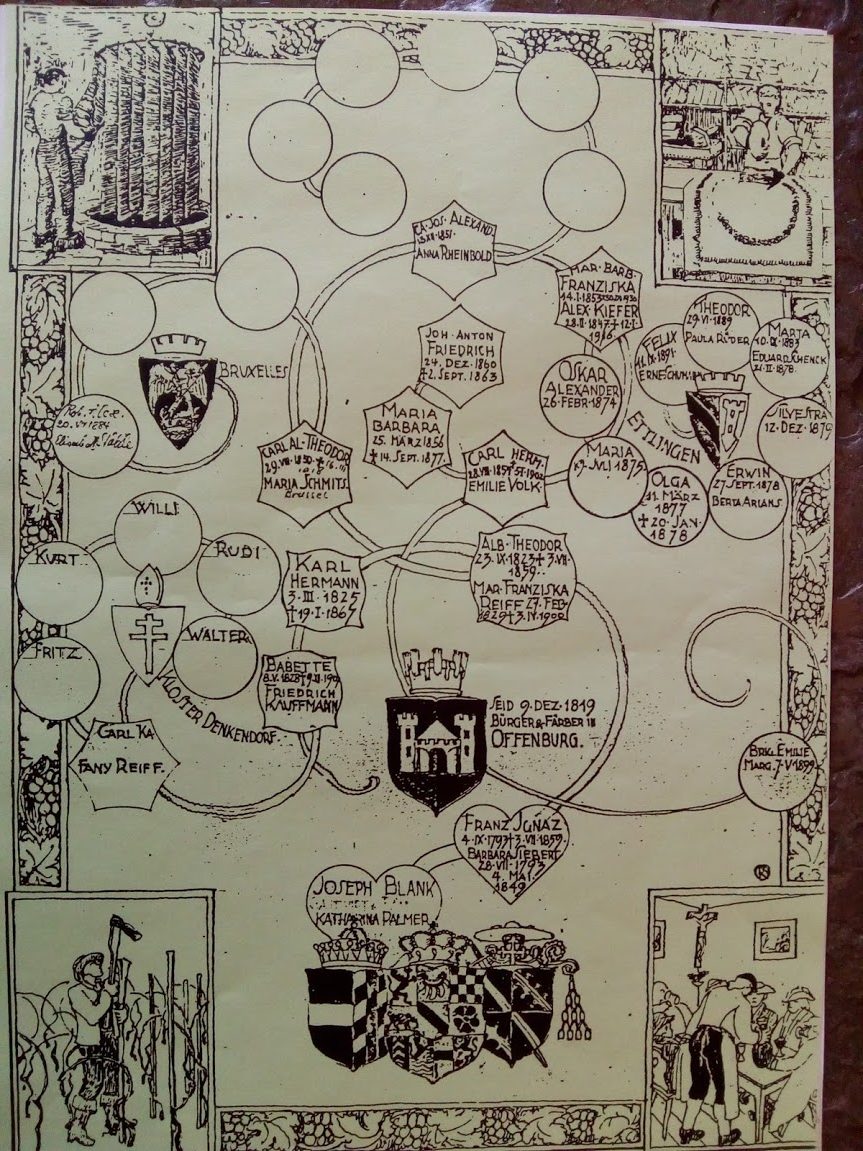 CA·JOS·ALEXAND.
ANNA RHEINBOLD
MAR·BARB·
FRANZISKA
ALEX·KIEFER
28·II·1847 † 12·I·
1916
JOH·ANTON
FRIEDRICH
24·DEZ·1860
†2·SEPT·1863
THEODOR
29·VI·1889
PAULA RÜDER
FELIX
11·IX·1891·
MARTA
10·IX·1883
EDUARD SCHENCK
21·II·1878·
OSKAR
ALEXANDER
26·FEBR·1874
ETTLINGEN
SILVESTRA
12·DEZ·1879
BRUXELLES
20·VI 1884
MARIA
BARBARA
25·MÄRZ 1856
†14·SEPT·1877·
CARL AL·THEODOR
MARIA SCHMITS
Brüssel
CARL HERM·
EMILIE VOLK·
MARIA
JULI 1875
OLGA
11·MÄRZ
1877
†20·JAN·
1878
ERWIN
27·SEPT·1878
BERTA ARIANS
WILLI
KURT·
RUDI
FRITZ
WALTER
KLOSTER DENKENDORF·
KARL
HERMANN
3·III·1825
†19·I·1867
ALB·THEODOR
23·IX·1823 † 3·VII·
1859·
MAR·FRANZISKA
REIFF 27·FEB·
1829 † 3·IV·1900
BABETTE
FRIEDRICH
KAUFFMANN
CARL KA
FANY REIFF·
SEID 9·DEZ·1819
BÜRGER & FÄRBER IN
OFFENBURG·
BRKL·EMILIE
MARG·7·V·1899·
FRANZ IGNAZ
4·IX·1793 † 3·VII·1859·
BARBARA SIEBERT
28·VII·1793
4·MAI·
1849
JOSEPH BLANK
KATHARINA PALMER·